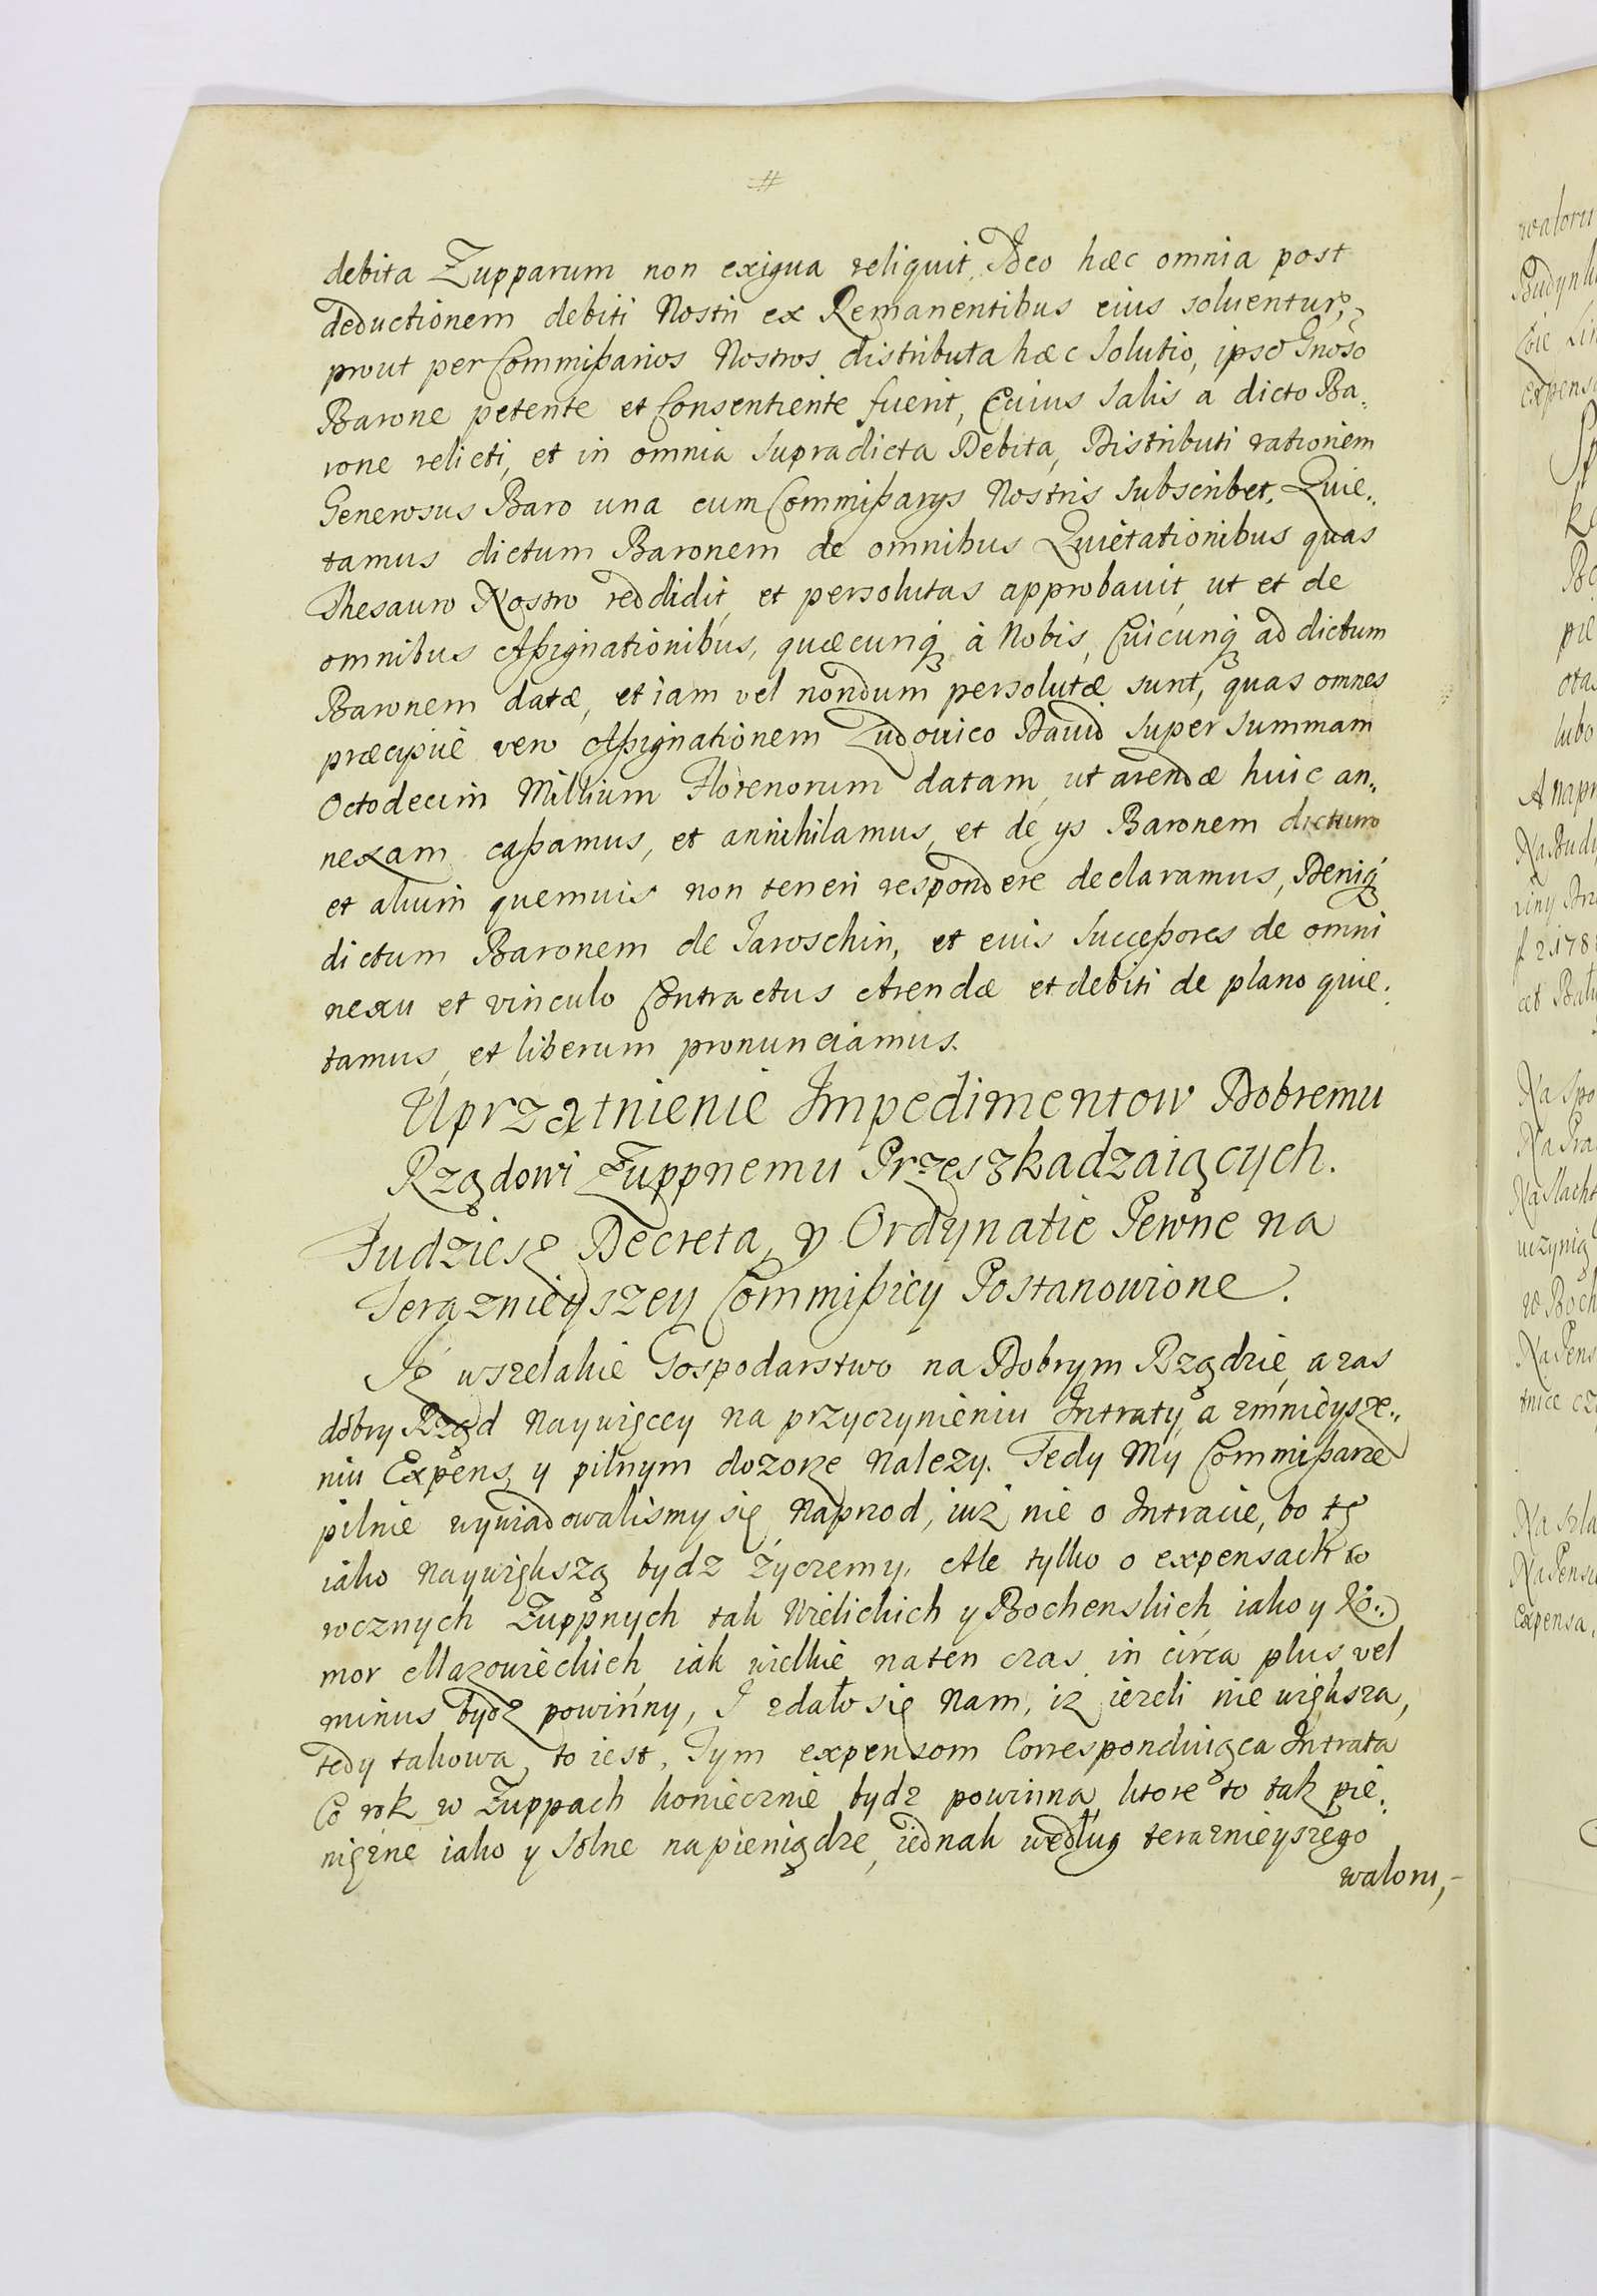 debita Zupparum non exigua reliquit, Ideo hæc omnia post
deductionem debiti Nostri ex Remanentibus eius soluentur,
prout per Commißarios Nostros distributa hæc Solutio, ipso Gnoso
Barone petente et Consentiente fuerit, Cuius Salis a dicto Ba„
rone relicti, et in omnia Supradicta Debita, Distributi rationem
Generosus Baro una cum Commißarys Nostris Subscribet. Quie„
tamus dictum Baronem de omnibus Quietationibus quas
Thesauro Nostro reddidit, et persolutas approbauit, ut et de
omnibus Aßignationibus, quæcunq à Nobis, Cuicunq ad dictum
Baronem datæ, et iam vel nondum persolutæ sunt, quas omnes
præcipuè vero Aßignationem Ludouico Dauid Super Summam
Octodecim Millium Florenorum datam, ut arendæ huic an„
nexam caßamus, et annihilamus, et de ys Baronem dictum
et alium quemuis non teneri respondere declaramus, Deniq
dictum Baronem de Jaroschin, et euis Succeßores de omni
nexu et vinculo Contractus Arendæ et debiti de plano quie„
tamus, et liberum pronunciamus.
Uprzątnienie Impedimentow Dobremu
Rządowi Żuppnemu Przeszkadzaiących.
Tudziesz Decreta, y Ordynatie Pewne na
Teraznieyszey Commißiey Postanowione.
Iż wszelakie Gospodarstwo na Dobrym Rządzie, a zas
dobry Rząd Naywięcey na przyczynieniu Intraty a zmnieysze„
niu Expens y pilnym dozorze Nalezy. Tedy My Commißarze
pilnie wywiadowalismy się Naprzod, iuż nie o Intracie, bo tę
iako Naywiększą bydz Życzemy, Ale tylko o expensach to
rocznych Żuppnych tak Wielickich y Bochenskich iako y Ko„
mor Mazowieckich, iak wielkie na ten czas in circa plus vel
minus bydz powinny, I zdało się Nam, iz iezeli nie większa,
tedy takowa, to iest, Tym expensom Corresponduiąca Intrata
Co rok w Żuppach koniecznie bydz powinna, ktore to tak pie„
niężne iako y Solne na pieniądze, iednak według teraznieyszego
waloru,